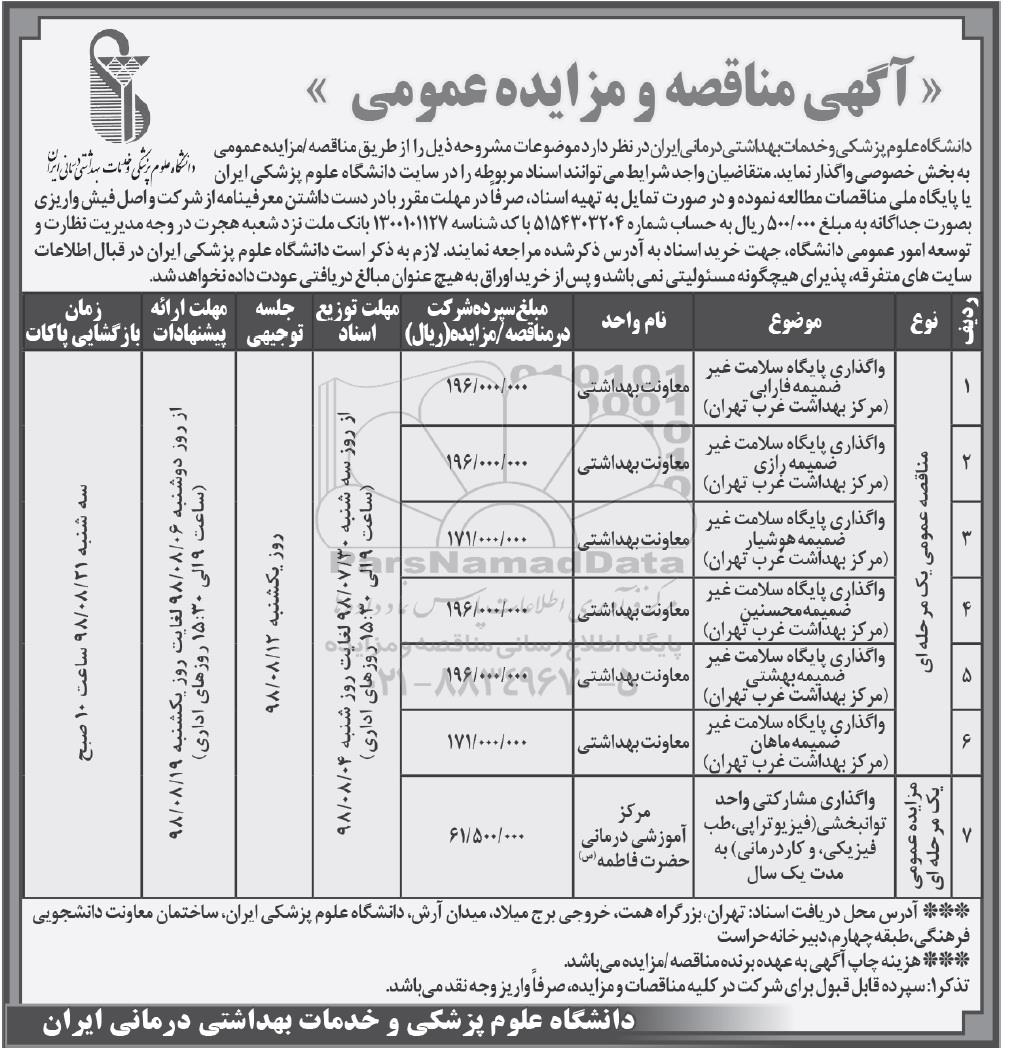 « آگهی مناقصه و مزایده عمومی »
دانشگاه علوم پزشکی و خدمات بهداشتی درمانی ایران
دانشگاه علوم پزشکی و خدمات بهداشتی درمانی ایران در نظر دارد موضوعات مشروحه ذیل را از طریق مناقصه/مزایده عمومی
به بخش خصوصی واگذار نماید. متقاضیان واجد شرایط می توانند اسناد مربوطه را در سایت دانشگاه علوم پزشکی ایران
یا پایگاه ملی مناقصات مطالعه نموده و در صورت تمایل به تهیه اسناد، صرفاً در مهلت مقرر با در دست داشتن معرفینامه از شرکت و اصل فیش واریزی
بصورت جداگانه به مبلغ ۵۰۰/۰۰۰ ریال به حساب شماره ۵۱۵۴۳۰۳۲۰۴ با کد شناسه ۱۳۰۰۱۰۱۱۲۷ بانک ملت نزد شعبه هجرت در وجه مدیریت نظارت و
توسعه امور عمومی دانشگاه، جهت خرید اسناد به آدرس ذکر شده مراجعه نمایند. لازم به ذکر است دانشگاه علوم پزشکی ایران در قبال اطلاعات
سایت های متفرقه، پذیرای هیچگونه مسئولیتی نمی باشد و پس از خرید اوراق به هیچ عنوان مبالغ دریافتی عودت داده نخواهد شد.
ردیف
نوع
موضوع
نام واحد
مبلغ سپرده شرکت
در مناقصه/مزایده(ریال)
مهلت توزیع
اسناد
جلسه
توجیهی
مهلت ارائه
پیشنهادات
زمان
بازگشایی پاکات
۱
مناقصه عمومی یک مرحله ای
واگذاری پایگاه سلامت غیر
ضمیمه فارابی
(مرکز بهداشت غرب تهران)
معاونت بهداشتی
۱۹۶/۰۰۰/۰۰۰
از روز سه شنبه ۹۸/۰۷/۳۰ لغایت روز شنبه ۹۸/۰۸/۰۴
(ساعت ۹ الی ۱۵:۳۰ روزهای اداری)
روز یکشنبه ۹۸/۰۸/۱۲
از روز دوشنبه ۹۸/۰۸/۰۶ لغایت روز یکشنبه ۹۸/۰۸/۱۹
(ساعت ۹ الی ۱۵:۳۰ روزهای اداری)
سه شنبه ۹۸/۰۸/۲۱ ساعت ۱۰ صبح
۲
واگذاری پایگاه سلامت غیر
ضمیمه رازی
(مرکز بهداشت غرب تهران)
معاونت بهداشتی
۱۹۶/۰۰۰/۰۰۰
۳
واگذاری پایگاه سلامت غیر
ضمیمه هوشیار
(مرکز بهداشت غرب تهران)
معاونت بهداشتی
۱۷۱/۰۰۰/۰۰۰
۴
واگذاری پایگاه سلامت غیر
ضمیمه محسنین
(مرکز بهداشت غرب تهران)
معاونت بهداشتی
۱۹۶/۰۰۰/۰۰۰
۵
واگذاری پایگاه سلامت غیر
ضمیمه بهشتی
(مرکز بهداشت غرب تهران)
معاونت بهداشتی
۱۹۶/۰۰۰/۰۰۰
۶
واگذاری پایگاه سلامت غیر
ضمیمه ماهان
(مرکز بهداشت غرب تهران)
معاونت بهداشتی
۱۷۱/۰۰۰/۰۰۰
۷
مزایده عمومی
یک مرحله ای
واگذاری مشارکتی واحد
توانبخشی(فیزیوتراپی،طب
فیزیکی، و کاردرمانی) به
مدت یک سال
مرکز
آموزشی درمانی
حضرت فاطمه(س)
۶۱/۵۰۰/۰۰۰
ParsNamadData
پایگاه اطلاع رسانی مناقصه و مزایده
*** آدرس محل دریافت اسناد: تهران، بزرگراه همت، خروجی برج میلاد، میدان آرش، دانشگاه علوم پزشکی ایران، ساختمان معاونت دانشجویی
فرهنگی، طبقه چهارم، دبیرخانه حراست
*** هزینه چاپ آگهی به عهده برنده مناقصه/مزایده می باشد.
تذکر۱: سپرده قابل قبول برای شرکت در کلیه مناقصات و مزایده، صرفاً واریز وجه نقد می باشد.
دانشگاه علوم پزشکی و خدمات بهداشتی درمانی ایران